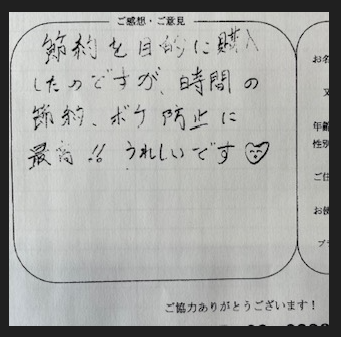 ご感想・ご意見
節約を目的に購入
したのですが、時間の
節約、ボケ防止に
最高!! うれしいです
お名
年齢
性別
ご住
お使
ご協力ありがとうございます！